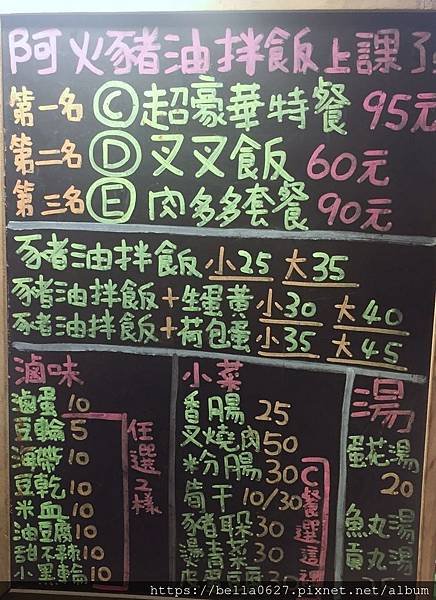 阿火豬油拌飯上課了
第一名 C 超豪華特餐 95元
第二名 D 叉叉飯 60元
第三名 E 肉多多套餐 90元
豬油拌飯 小25 大35
豬油拌飯+生蛋黃 小30 大40
豬油拌飯+荷包蛋 小35 大45
滷味
滷蛋 10
豆輪 5
海帶 10
豆乾 10
米血 10
油豆腐 10
甜不辣 10
小黑輪 10
任選2樣
小菜
香腸 25
叉燒肉50
粉腸 30
筍干 10/30
豬頭皮30
燙青菜30
30
C餐選這裡
湯
蛋花湯
20
魚丸湯
貢丸湯
25
https://bella0627.pixnet.net/album